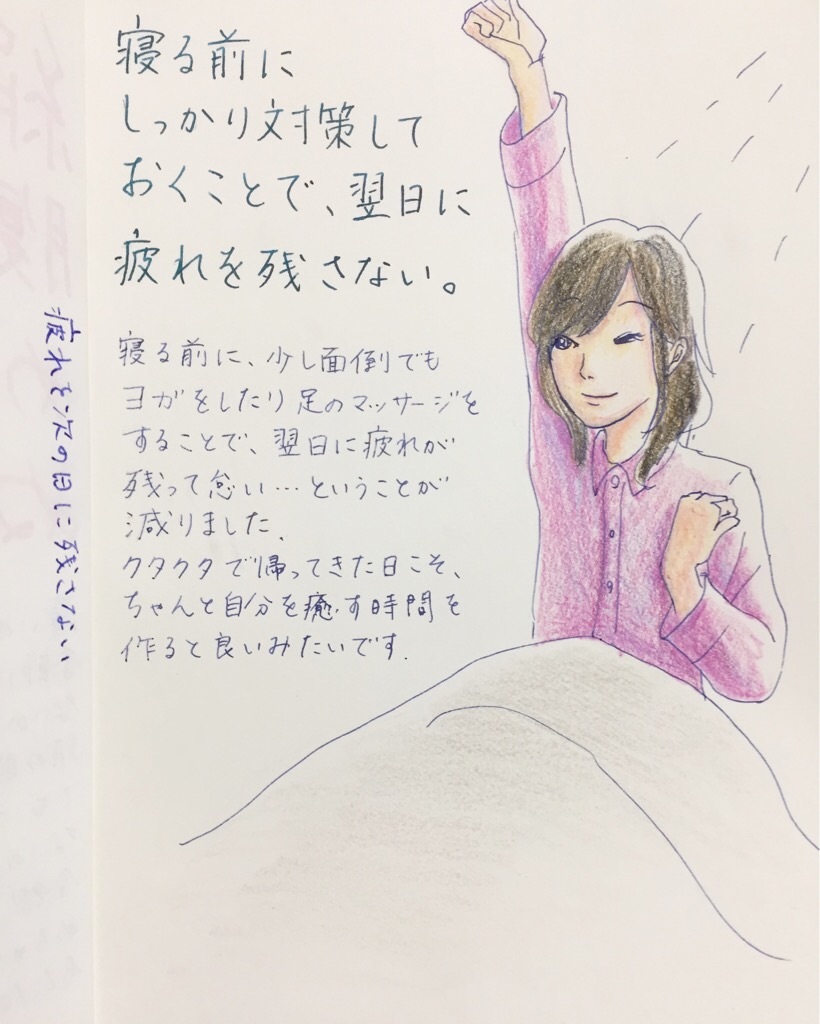 寝る前に
しっかり対策して
おくことで、翌日に
疲れを残さない。
寝る前に、少し面倒でも
ヨガをしたり足のマッサージを
することで、翌日に疲れが
残って怠い…ということが
減りました。
クタクタで帰ってきた日こそ、
ちゃんと自分を癒す時間を
作ると良いみたいです.
疲れを次の日に残さない